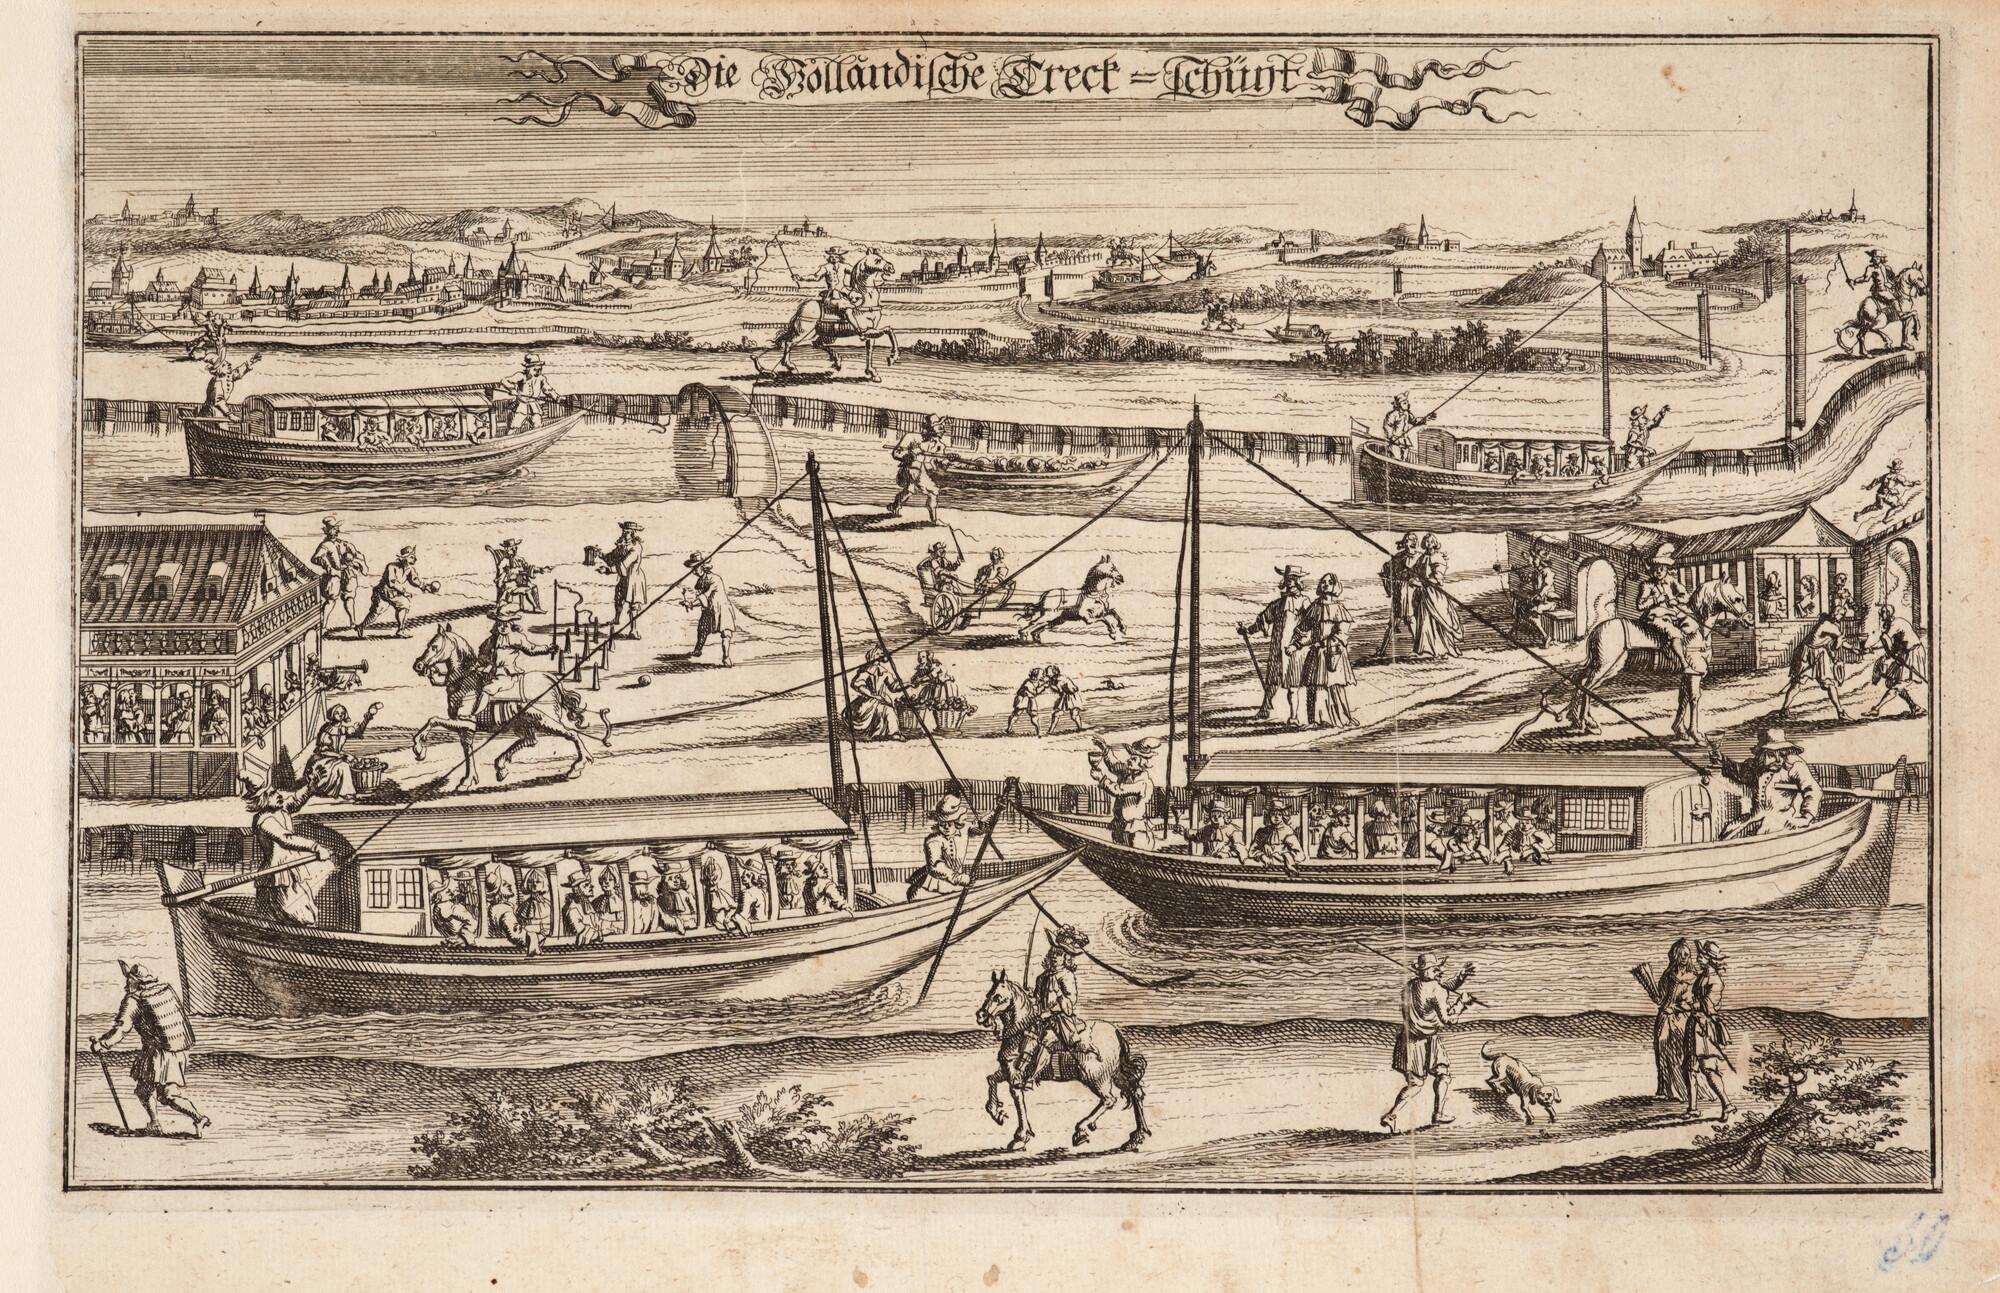 Die Holländische Treck = schüyt